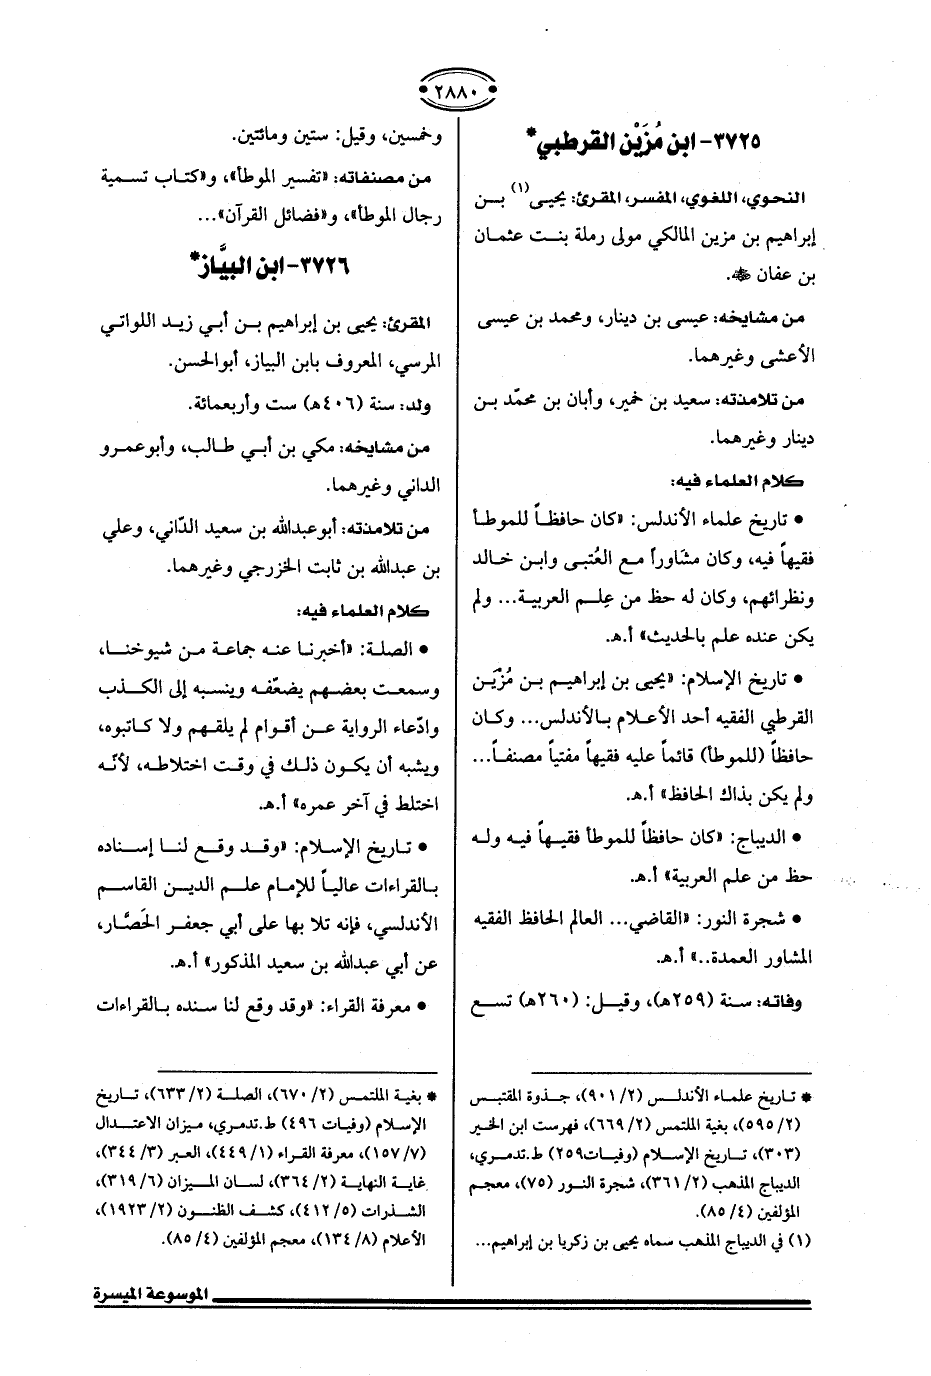 ٢٨٨٠
٣٧٢٥- ابن مُزَيْن القرطبي*
النحوي، اللغوي، المفسر، المقرئ: يحيى(١) بن
إبراهيم بن مزين المالكي مولى رملة بنت عثمان
بن عفان ﷺ.
من مشايخه: عيسى بن دينار، ومحمد بن عيسى
الأعشى وغيرهما.
من تلامذته: سعيد بن خمير، وأبان بن محمّد بن
دينار وغيرهما.
كلام العلماء فيه:
• تاريخ علماء الأندلس: «كان حافظاً للموطأ
فقيهاً فيه، وكان مشاوراً مع العُتبى وابن خالد
ونظرائهم، وكان له حظ من عِلم العربية... ولم
يكن عنده علم بالحديث» أ.هـ.
• تاريخ الإسلام: «يحيى بن إبراهيم بن مُزَين
القرطبي الفقيه أحد الأعلام بالأندلس... وكان
حافظاً (للموطأ) قائماً عليه فقيهاً مفتياً مصنفاً...
ولم يكن بذاك الحافظ» أ.هـ.
• الديباج: «كان حافظاً للموطأ فقيهاً فيه وله
حظ من علم العربية» أ.هـ.
• شجرة النور: «القاضي... العالم الحافظ الفقيه
المشاور العمدة..» أ.هـ.
وفاته: سنة (٢٥٩هـ)، وقيل: (٢٦٠هـ) تسع
* تاريخ علماء الأندلس (٢/ ٩٠١)، جذوة المقتبس
(٢/ ٥٩٥)، بغية الملتمس (٢/ ٦٦٩)، فهرست ابن الخير
(٣٠٣)، تاريخ الإسلام (وفيات٢٥٩) ط.تدمري،
الديباج المذهب (٢/ ٣٦١)، شجرة النور (٧٥)، معجم
المؤلفين (٤/ ٨٥).
(١) في الديباج المذهب سماه يحيى بن زكريا بن إبراهيم...
وخمسين، وقيل: ستين ومائتين.
من مصنفاته: «تفسير الموطأ»، و«كتاب تسمية
رجال الموطأ»، و«فضائل القرآن»...
٣٧٢٦- ابن البيَّاز*
المقرئ: يحيى بن إبراهيم بن أبي زيد اللواتي
المرسي، المعروف بابن البياز، أبوالحسن.
ولد: سنة (٤٠٦هـ) ست وأربعمائة.
من مشايخه: مكي بن أبي طالب، وأبوعمرو
الداني وغيرهما.
من تلامذته: أبوعبدالله بن سعيد الدّاني، وعلي
بن عبدالله بن ثابت الخزرجي وغيرهما.
كلام العلماء فيه:
• الصلة: «أخبرنا عنه جماعة من شيوخنا،
وسمعت بعضهم يضعّفه وينسبه إلى الكذب
وادّعاء الرواية عن أقوام لم يلقهم ولا كاتبوه،
ويشبه أن يكون ذلك في وقت اختلاطه، لأنّه
اختلط في آخر عمره» أ.هـ.
• تاريخ الإسلام: «وقد وقع لنا إسناده
بالقراءات عالياً للإمام علم الدين القاسم
الأندلسي، فإنه تلا بها على أبي جعفر الحَصَّار،
عن أبي عبدالله بن سعيد المذكور» أ.هـ.
• معرفة القراء: «وقد وقع لنا سنده بالقراءات
* بغية الملتمس (٢/ ٦٧٠)، الصلة (٢/ ٦٣٣)، تاريخ
الإسلام (وفيات ٤٩٦) ط.تدمري، ميزان الاعتدال
(٧/ ١٥٧)، معرفة القراء (١/ ٤٤٩)، العبر (٣/ ٣٤٤)،
غاية النهاية (٢/ ٣٦٤)، لسان الميزان (٦/ ٣١٩)،
الشذرات (٥/ ٤١٢)، كشف الظنون (٢/ ١٩٢٣)،
الأعلام (٨/ ١٣٤)، معجم المؤلفين (٤/ ٨٥).
الموسوعة الميسرة